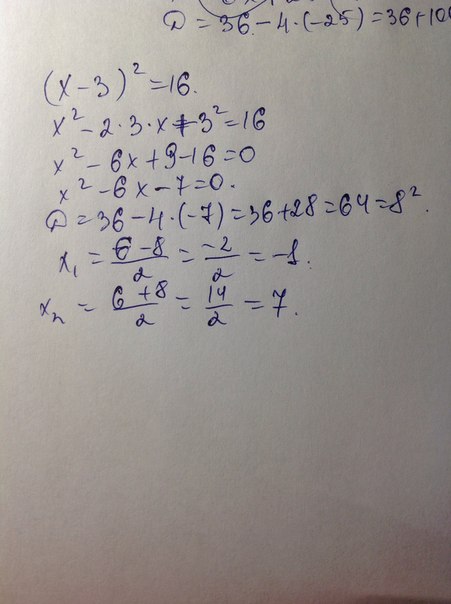 D = 36 - 4·(-25) = 36 + 10
(x-3)² = 16.
x² - 2·3·x + 3² = 16
x² - 6x + 9 - 16 = 0
x² - 6x - 7 = 0.
D = 36 - 4·(-7) = 36 + 28 = 64 = 8².
x₁ = (6-8)/2 = -2/2 = -1.
x₂ = (6+8)/2 = 14/2 = 7.